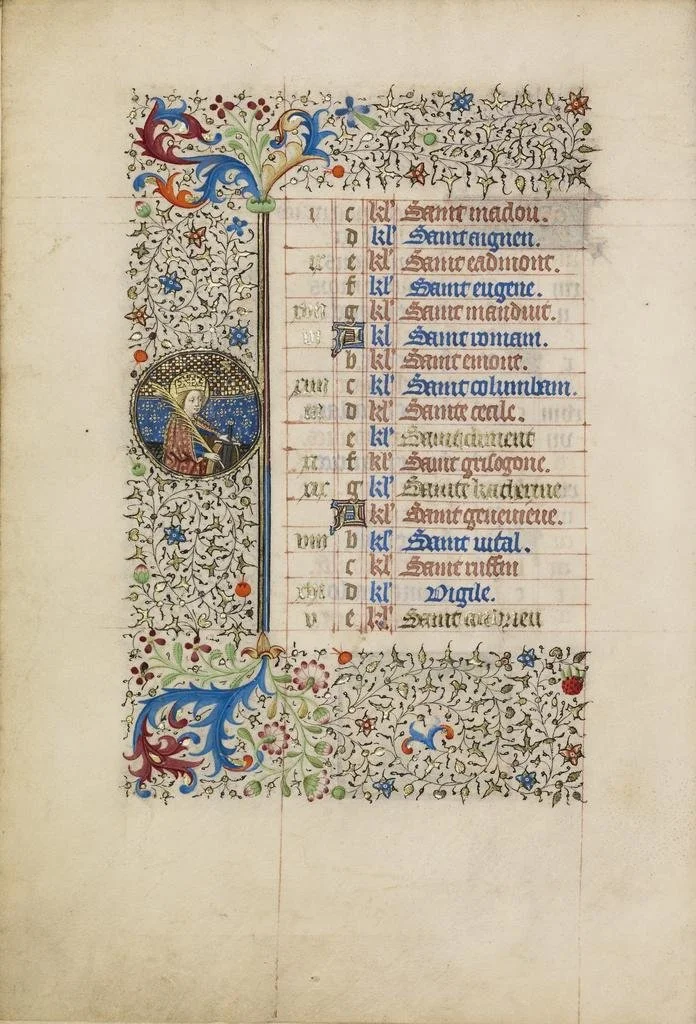 c kl' Saint madou.
d kl' Saint aignen.
e kl' Saint eadmont.
f kl' Saint eugene.
g kl' Saint manduit.
A kl' Saint romain.
b kl' Saint emont.
c kl' Saint columbam.
d kl' Sainte cecile.
e kl' Saint clement
xi f kl' Saint grisogone.
xix g kl' Sainte katherine
A kl' Saint geneuieue.
viii b kl' Saint uital.
c kl' Saint ruffin
xvi d kl' Vigile.
v e kl' Saint andrieu